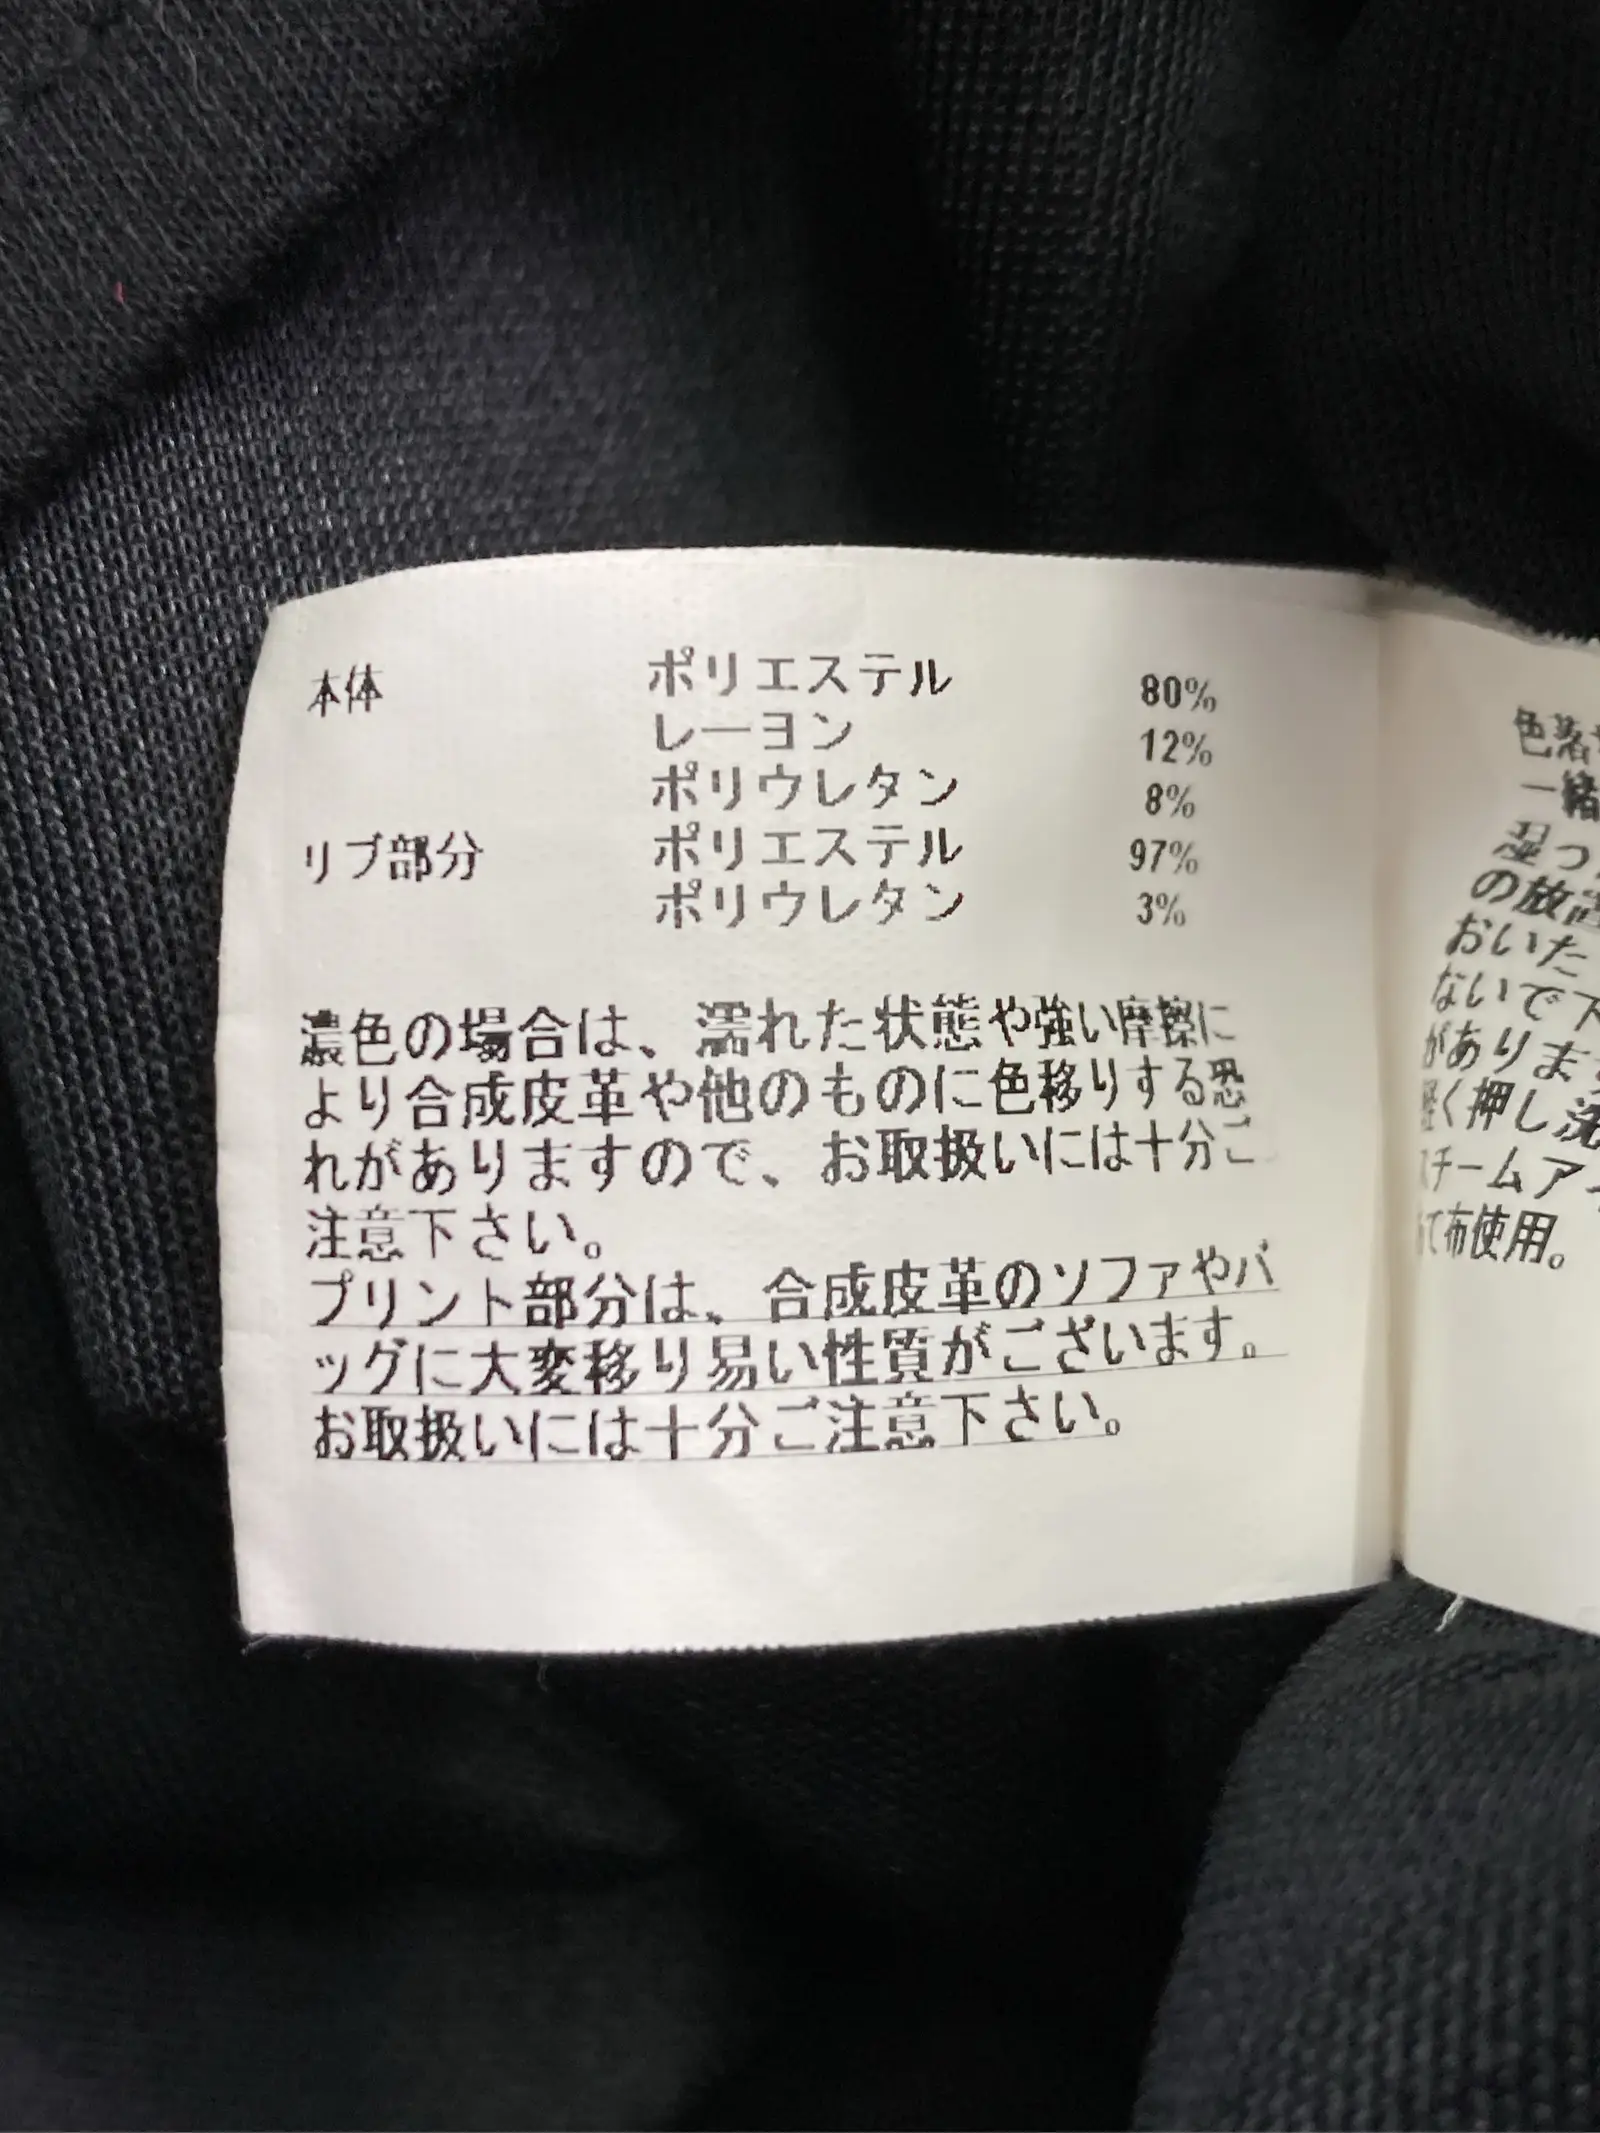 本体 ポリエステル 80%
レーヨン 12%
ポリウレタン 8%
リブ部分 ポリエステル 97%
ポリウレタン 3%
濃色の場合は、濡れた状態や強い摩擦に
より合成皮革や他のものに色移りする恐
れがありますので、お取扱いには十分ご
注意下さい。
プリント部分は、合成皮革のソファやバ
ッグに大変移り易い性質がございます。
お取扱いには十分ご注意下さい。
色落
一緒
湿っ
の放置
おいた
ないで下
がありま
軽く押し洗
スチームア
て布使用。